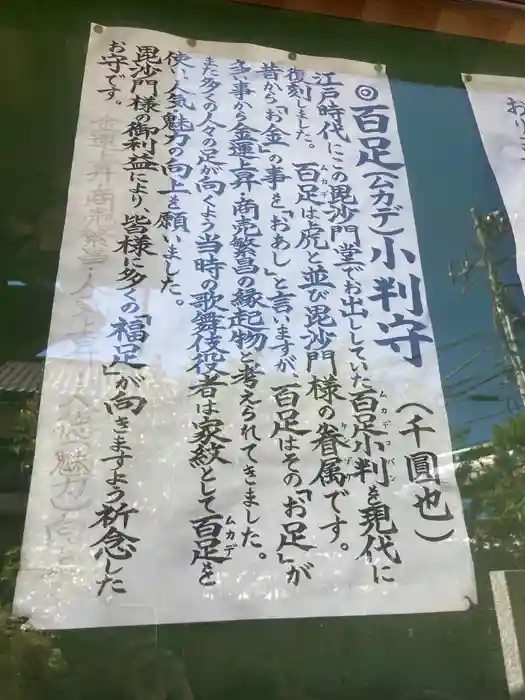 ◎百足(ムカデ)小判守
(千圓也)
江戸時代にこの毘沙門堂でお出ししていた百足小判を現代に
ムカデコバン
復刻しました。百足は虎と並び毘沙門様の眷属です。
ムカデ
昔から「お金」の事を「おあし」と言いますが、百足はその「お足」が
多い事から金運上昇・商売繁昌の縁起物と考えられてきました。
また多くの人々の足が向くよう当時の歌舞伎役者は家紋として百足を
ムカデ
使い人気魅力の向上を願いました。
毘沙門様の御利益により、皆様に多くの「福足」が向きますよう祈念した
お守です。
金運上昇・商売繁昌・人